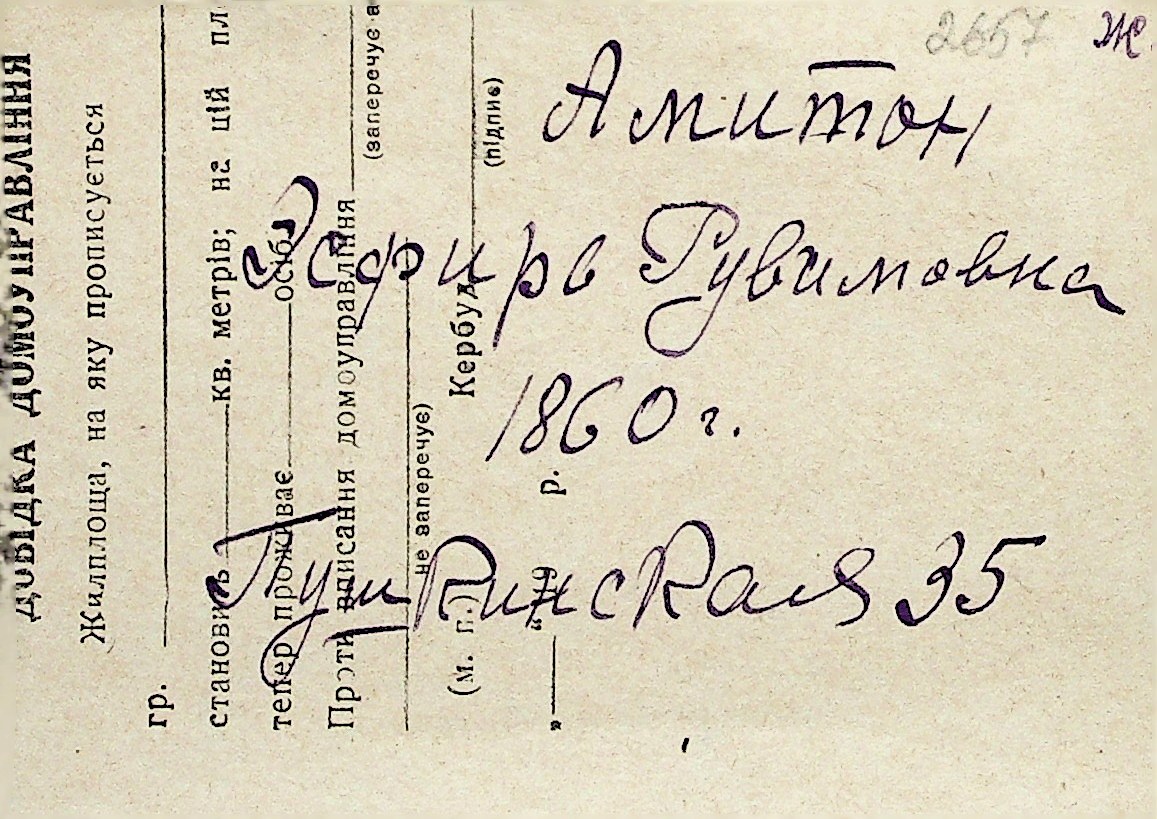 2657 Ж.
Амитон
Эсфирь Рувимовна
1860 г.
Пушкинская 35
ДОВІДКА ДОМОУПРАВЛІННЯ
Жилплоща, на яку прописується
гр.
становить кв. метрів; на цій пл
тепер проживає осіб.
(заперечує а
Проти вписання домоуправління
не заперечує)
(підпис)
(м. п.) Кербуд
" " р.